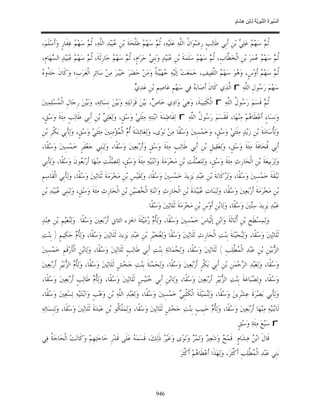 السِّيرَةُ النَّبَوِيَّةُ لابْنِ هِشَامٍ
ثُمَّ سَهْمُ عَلِيِّ بْنِ أَبِي طَالِبٍ رِضْوَانُ اللَّهِ عَلَيْهِ، ثُمَّ سَهْمُ طَلْحَةَ بْنِ عُبَيْدِ اللَّهِ، ثُمَّ سَهْمُ غِفَارٍ وَأَسْلَمَ،
ثُمَّ سَهْمُ عُمَرَ بْنِ الْخَطَّابِ، ثُمَّ سَهْمُ سَلَمَةَ بْنِ عُبَيْدٍ وَبَنِي حَرَامٍ، ثُمَّ سَهْمُ حَارِثَةَ، ثُمَّ سَهْمُ عُبَيْدِ السِّهَامِ،
ثُمَّ سَهْمُ أَوْسٍ، وَهُوَ سَهْمُ اللَّفِيفِ، جَمَعَتْ إلَيْهِ جُهَيْنَةُ وَمَنْ حَضَرَ خَيْبَرَ مِنْ سَائِرِ الْعَرَبِ؛ وَكَانَ حَذْوَهُ
سَهْمُ رَسُولِ اللَّهِ r الَّذِي كَانَ أَصَابَهُ فِي سَهْمِ عَاصِمِ بْنِ عَدِيٍّ
ثُمَّ قَسَمَ رَسُولُ اللَّهِ r الْكَتِيبَةَ، وَهِيَ وَادِي خَاصٍّ، بَيْنَ قَرَابَتِهِ وَبَيْنَ نِسَائِهِ، وَبَيْنَ رِجَالِ الْمُسْلِمِينَ
وَنِسَاءٍ أَعْطَاهُمْ مِنْهَا، فَقَسَمَ رَسُولُ اللَّهِ r لِفَاطِمَةَ ابْنَتِهِ مِئَتَيْ وَسْقٍ، وَلِعَلِيِّ بْنِ أَبِي طَالِبٍ مِئَةَ وَسْقٍ،
وَلأُسَامَةَ بْنِ زَيْدٍ مِئَتَيْ وَسْقٍ، وَخَمْسِينَ وَسْقًا مِنْ نَوًى، وَلِعَائِشَةَ أُمِّ الْمُؤْمِنِينَ مِئَتَيْ وَسْقٍ، وَلأَبِي بَكْرِ بْنِ
أَبِي قُحَافَةَ مِئَةَ وَسْقٍ، وَلِعَقِيلِ بْنِ أَبِي طَالِبٍ مِئَةَ وَسْقٍ وَأَرْبَعِينَ وَسْقًا، وَلِبَنِي جَعْفَرٍ خَمْسِينَ وَسْقًا،
وَلِرَبِيعَةَ بْنِ الْحَارِثِ مِئَةَ وَسْقٍ، وَلِلصَّلْتِ بْنِ مَخْرَمَةَ وَابْنَيْهِ مِئَةَ وَسْقٍ، لِلصَّلْتِ مِنْهَا أَرْبَعُونَ وَسْقًا، وَلأَبِي
نَبْقَةَ خَمْسِينَ وَسْقًا، وَلِرُكَانَةَ بْنِ عَبْدِ يَزِيدَ خَمْسِينَ وَسْقًا، وَلِقَيْسِ بْنِ مَخْرَمَةَ ثَلاثِينَ وَسْقًا، وَلأَبِي الْقَاسِمِ
بْنِ مَخْرَمَةَ أَرْبَعِينَ وَسْقًا، وَلِبَنَاتِ عُبَيْدَةَ بْنِ الْحَارِثِ وَابْنَةِ الْحُصَيْنِ بْنِ الْحَارِثِ مِئَةَ وَسْقٍ، وَلِبَنِي عُبَيْدِ بْنِ
عَبْدِ يَزِيدَ سِتِّينَ وَسْقًا، وَلابْنِ أَوْسِ بْنِ مَخْرَمَةَ ثَلاثِينَ وَسْقًا
وَلِمِسْطَحِ بْنِ أُثَاثَةَ وَابْنِ إلْيَاسَ خَمْسِينَ وَسْقًا، وَلأُمِّ رُمَيْثَةَ الجزء الثاني أَرْبَعِينَ وَسْقًا وَلِنُعَيْمِ بْنِ هِنْدٍ
ثَلاثِينَ وَسْقًا، وَلِبُحَيْنَةَ بِنْتِ الْحَارِثِ ثَلاثِينَ وَسْقًا وَلِعُجَيْرِ بْنِ عَبْدِ يَزِيدَ ثَلاثِينَ وَسْقًا، وَلأُمِّ حَكِيمٍ { بِنْتِ
الزُّبَيْرِ بْنِ عَبْدِ الْمُطَّلِبِ } ثَلاثِينَ وَسْقًا، وَلِجُمَانَةَ بِنْتِ أَبِي طَالِبٍ ثَلاثِينَ وَسْقًا، وَلابْنِ الأَرْقَمِ خَمْسِينَ
وَسْقًا، وَلِعَبْدِ الرَّحْمَنِ بْنِ أَبِي بَكْرٍ أَرْبَعِينَ وَسْقًا، وَلِحَمْنَةَ بِنْتِ جَحْشٍ ثَلاثِينَ وَسْقًا، وَلأُمِّ الزُّبَيْرِ أَرْبَعِينَ
وَسْقًا، وَلِضُبَاعَةَ بِنْتِ الزُّبَيْرِ أَرْبَعِينَ وَسْقًا، وَلابْنِ أَبِي خُنَيْسٍ ثَلاثِينَ وَسْقًا، وَلأُمِّ طَالِبٍ أَرْبَعِينَ وَسْقًا،
وَلأَبِي بَصْرَةَ عِشْرِينَ وَسْقًا، وَلِنُمَيْلَةَ الْكَلْبِيِّ خَمْسِينَ وَسْقًا، وَلِعَبْدِ اللَّهِ بْنِ وَهْبٍ وَابْنَتَيْهِ تِسْعِينَ وَسْقًا،
لابْنَيْهِ مِنْهَا أَرْبَعِينَ وَسْقًا، وَلأُمِّ حَبِيبٍ بِنْتِ جَحْشٍ ثَلاثِينَ وَسْقًا، وَلِمَلْكُو بْنِ عَبْدَةَ ثَلاثِينَ وَسْقًا، وَلِنِسَائِهِ
r سَبْعَ مِئَةِ وَسْقٍ
قَالَ ابْنُ هِشَامٍ: قَمْحٌ وَشَعِيرٌ وَتَمْرٌ وَنَوًى وَغَيْرُ ذَلِكَ، قَسَمَهُ عَلَى قَدْرِ حَاجَتِهِمْ وَكَانَتْ الْحَاجَةُ فِي
بَنِي عَبْدِ الْمُطَّلِبِ أَكْثَرَ، وَلِهَذَا أَعْطَاهُمْ أَكْثَرَ
946